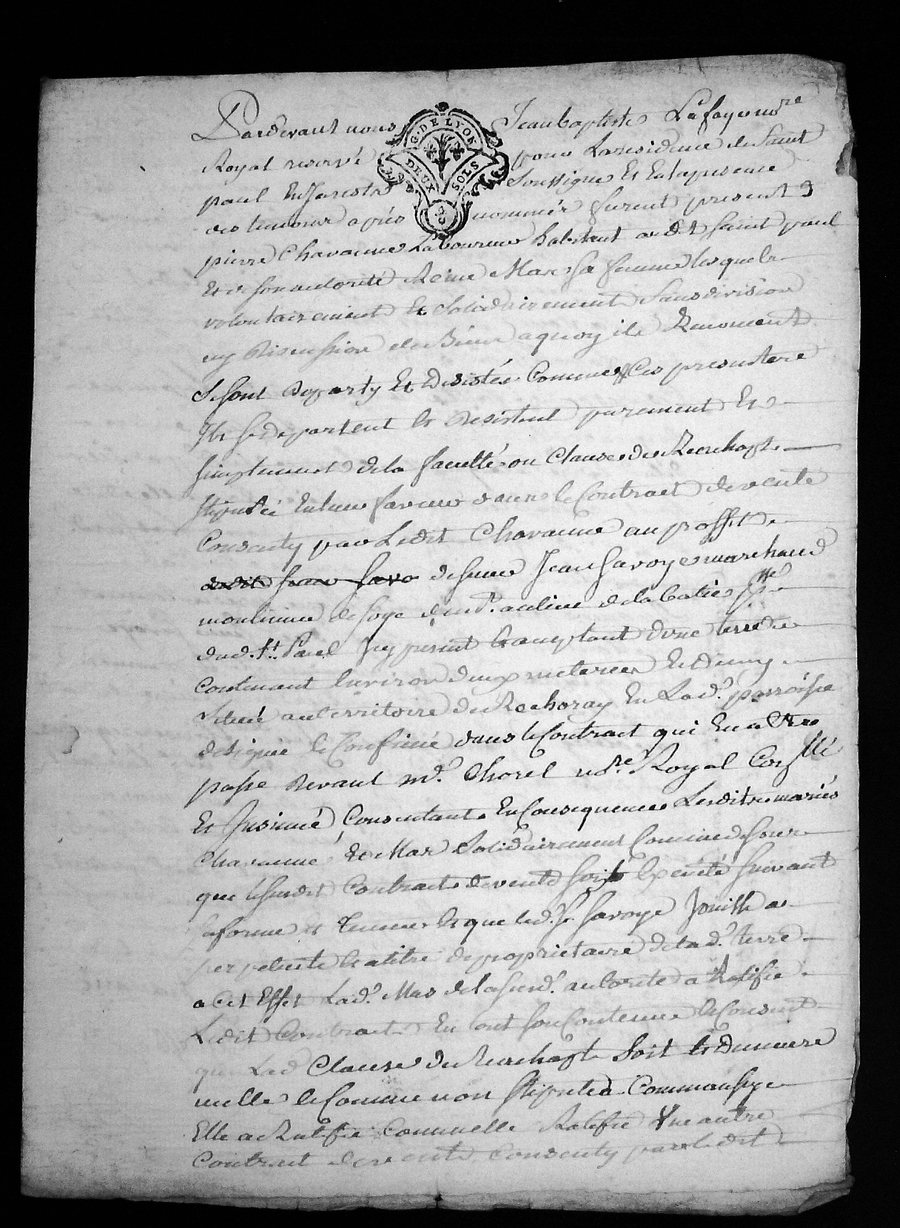 Pardevant nous Jean baptiste Lafay no.re
G. DE LYON
DEUX SOLS
Royal reservé pour La residence de Saint
paul En Jarest Soussigné Et En la presence
des temoins aprés nommés furent presents
pierre Chavanne Laboureur habitant au dit Saint paul
Et de son autorité Reine Mar sa femme lesquels
volontairement Et Solidairement Sans division
ny discussion de Biens a quoy ils Renoncent
Se sont Departy Et Desistés Comme Ces presentes
Ils se departent Et Desistent purement Et
simplement de la faculté ou Clause de Reachapt
stipulée En leur faveur dans le Contrat de vente
Consenty par Ledit Chavanne au proffit
dudit Jean Savo defunt Jean Savoye marchand
moulinier de soye du lieu de la batie p.sse
dud. S.t Paul Icy present Et acceptant d'une terre
Contenant Environ deux meterées Et demy
Située au territoire du En Lad. parroisse
designée Et Confinée dans le Contrat qui En a Eté
passé Devant m.e Chorel no.re Royal
Et Insinué, Consentants En Consequence Lesdits mariés
Chavanne Et Mar Solidairement Comme dessus
que le susdit Contract de vente soit Executé suivant
sa forme Et teneur Et que led. S. Savoye Jouisse a
perpetuité Et a titre de proprietaire de lad. terre
a Cet Effet Lad. Mar de la susd. autorité a Ratifié
Ledit Contract En tout son Contenu Et Consent
que Lad. Clause de Reachapt Soit Et Demeure
nulle Et Comme non Stipulée Comme aussy
Elle a Ratifié Comm'elle Ratifie Un autre
Contract de vente Consenty par Ledit